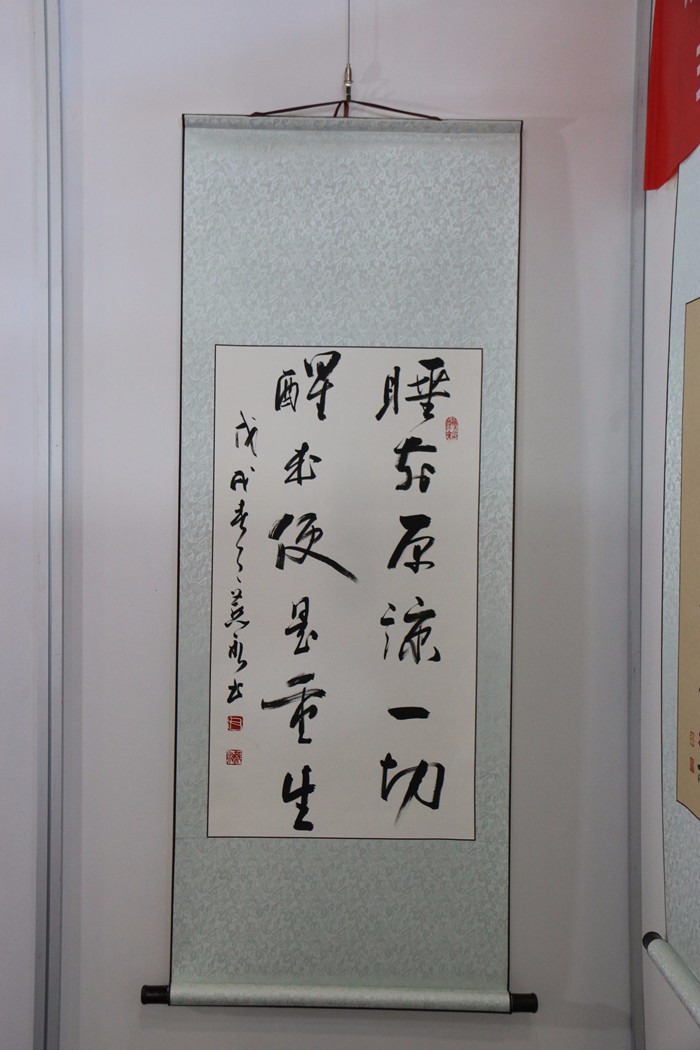 睡前原谅一切
醒来便是重生
戊戌春